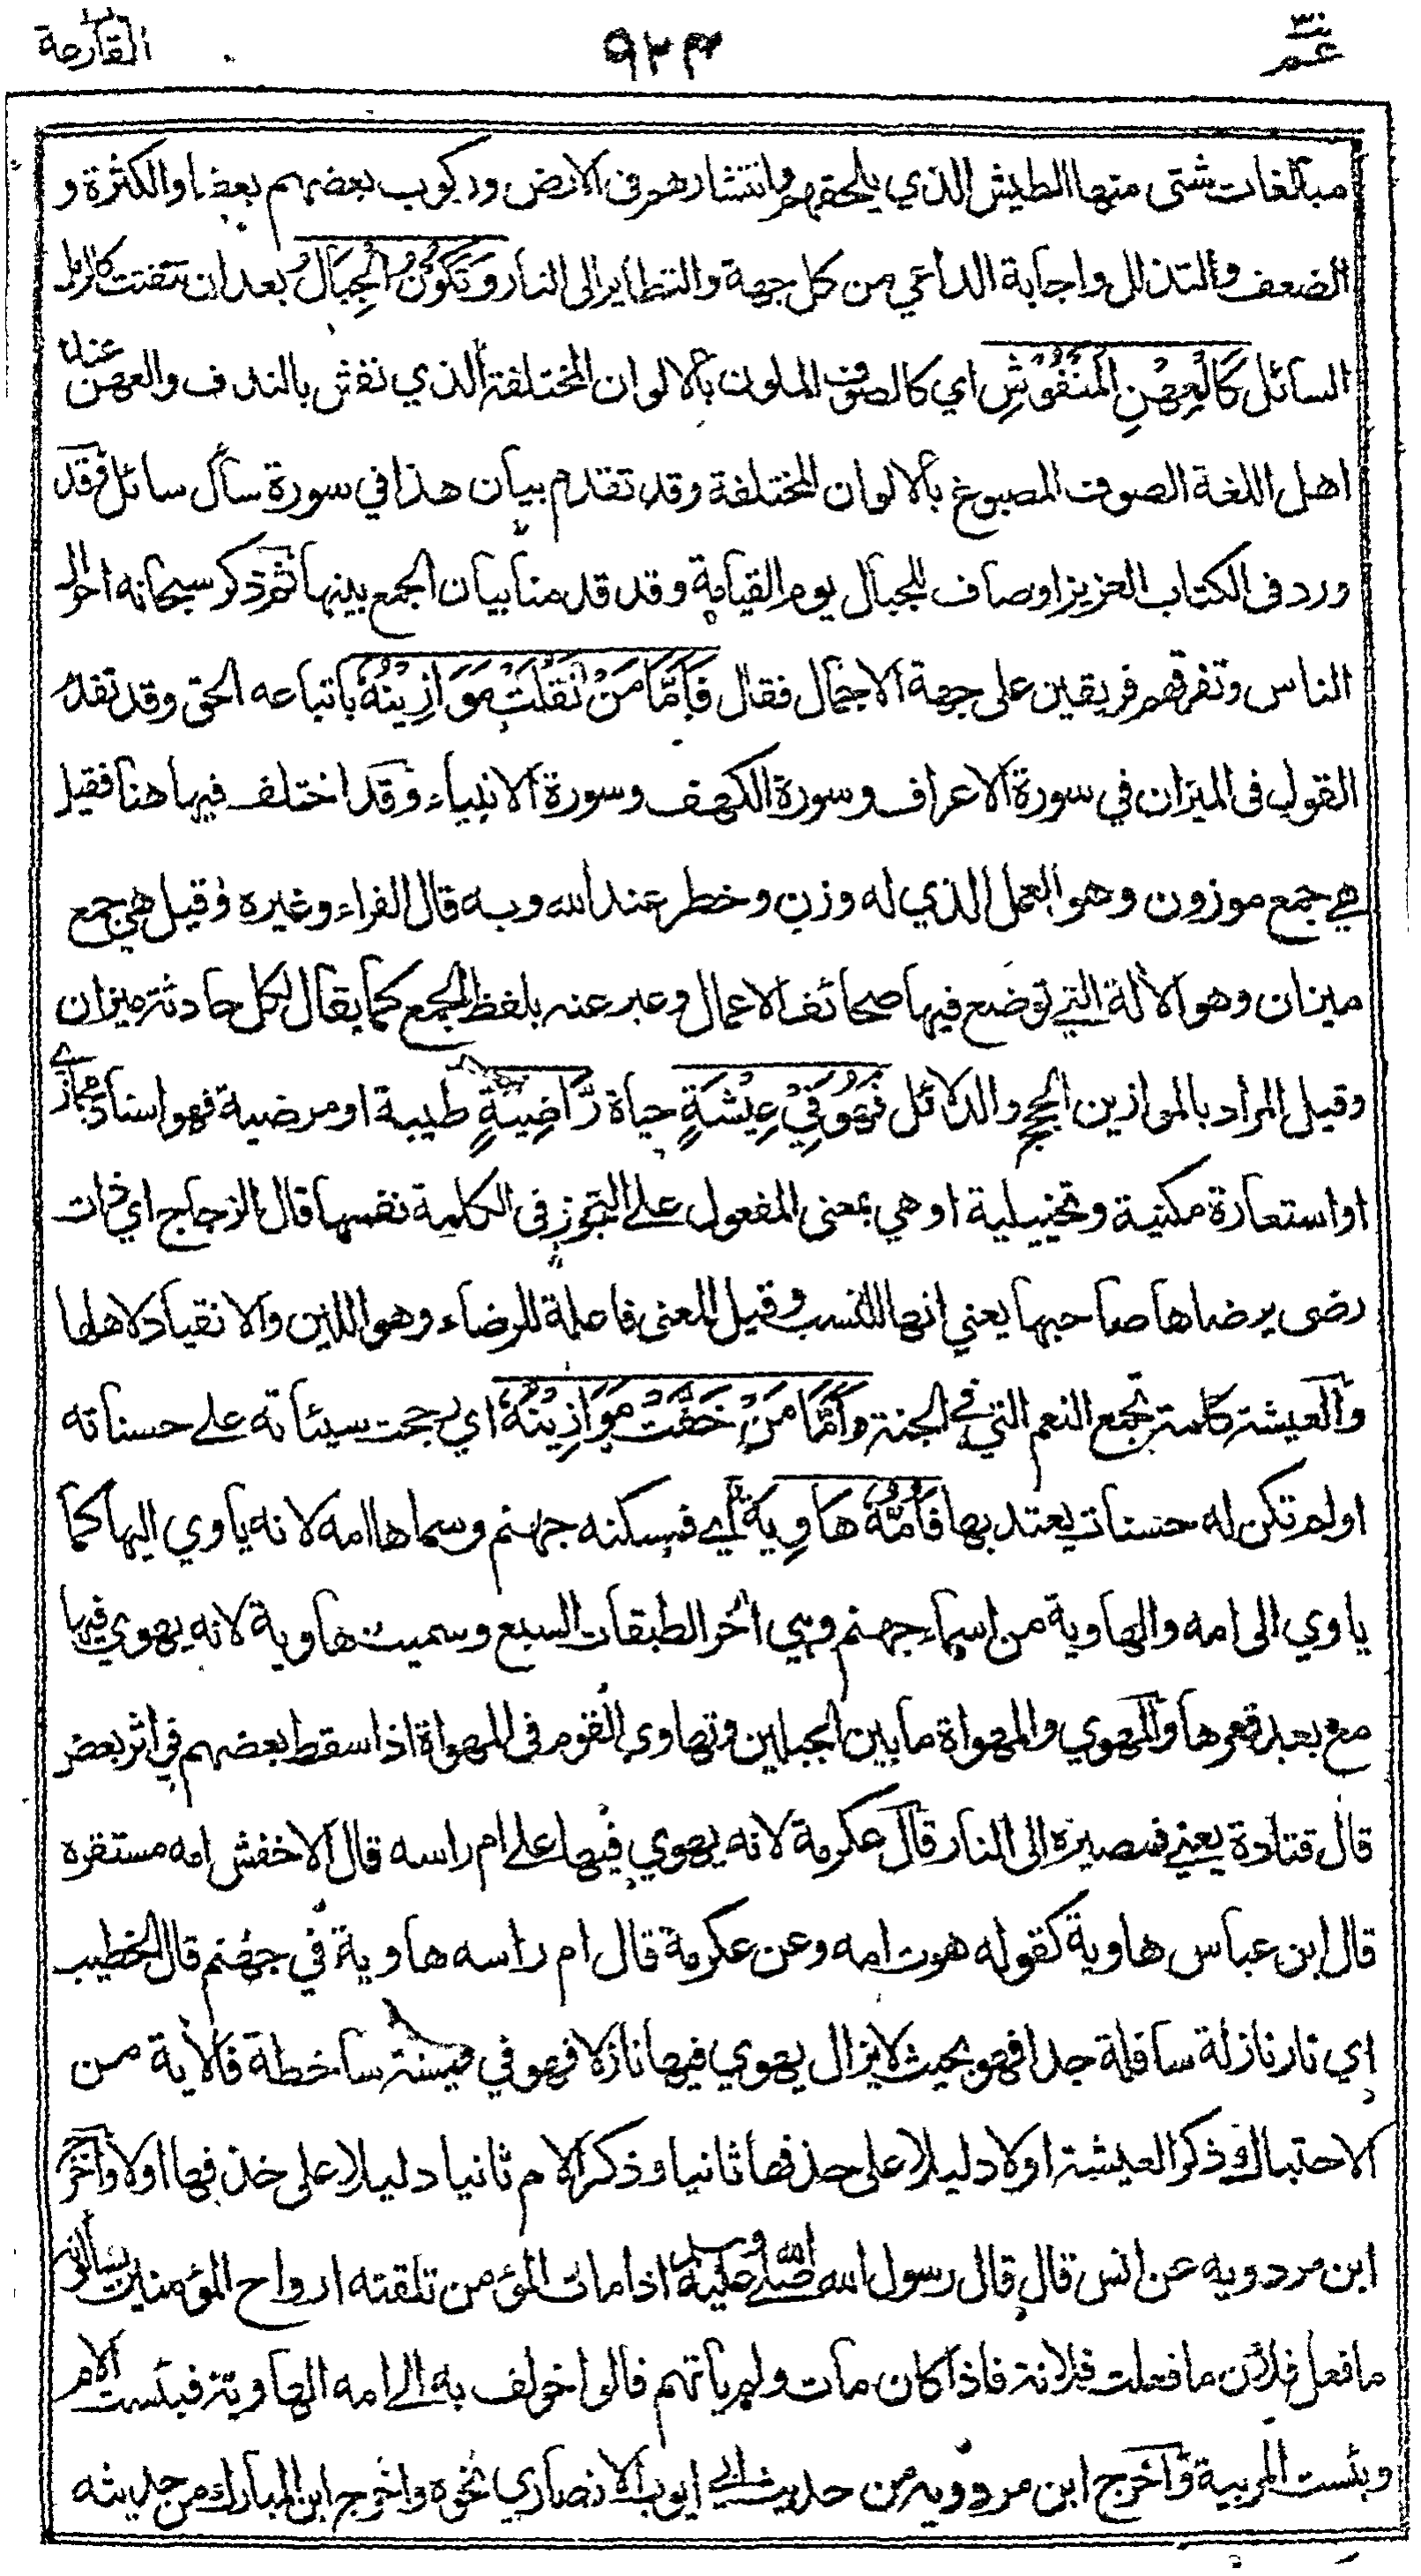 عم
٩٣٤
القارعة
مبالغات شتى منها الطيش الذي يلحقهم وانتشارهم في الارض وركوب بعضهم بعضا والكثرة و
الضعف والتذلل واجابة الداعي من كل جهة والتطاير الى النار وَتَكُوْنُ الْجِبَالُ بعد ان تتفتت كالرمل
السائل كَالْعِهْنِ الْمَنْفُوْشِ اي كالصوف الملون بالالوان المختلفة الذي نفش بالندف والعهن عند
اهل اللغة الصوف المصبوغ بالالوان المختلفة وقد تقدم بيان هذا في سورة سأل سائل وقد
ورد في الكتاب العزيز اوصاف للجبال يوم القيامة وقد قدمنا بيان الجمع بينها ثم ذكر سبحانه احوال
الناس وتفرقهم فريقين على جهة الاجمال فقال فَاَمَّا مَنْ ثَقُلَتْ مَوَازِيْنُهٗ باتباعه الحق وقد تقدم
القول في الميزان في سورة الاعراف وسورة الكهف وسورة الانبياء وقد اختلف فيها هنا فقيل
هي جمع موزون وهو العمل الذي له وزن وخطر عند الله وبه قال الفراء وغيره وقيل هي جمع
ميزان وهو الآلة التي توضع فيها صحائف الاعمال وعبر عنه بلفظ الجمع كما يقال لكل حادثة ميزان
وقيل المراد بالموازين الحجج والدلائل فَهُوَ فِيْ عِيْشَةٍ حياة رَّاضِيَةٍ طيبة او مرضية فهو اسناد مجازي
او استعارة مكنية وتخييلية او هي بمعنى المفعول على التجوز في الكلمة نفسها قال الزجاج اي ذات
رضى يرضاها صاحبها يعني انها للنسب وقيل المعنى فاعلة للرضاء وهو اللين والانقياد لاهلها
والعيشة كلمة تجمع النعم التي في الجنة وَاَمَّا مَنْ خَفَّتْ مَوَازِيْنُهٗ اي رجحت سيئاته على حسناته
او لم تكن له حسنات يعتد بها فَاُمُّهٗ هَاوِيَةٌ اي فمسكنه جهنم وسماها امه لانه ياوي اليها كما
ياوي الى امه والهاوية من اسماء جهنم وهي آخر الطبقات السبع وسميت هاوية لانه يهوي فيها
مع بعد قعرها والمهوى والمهواة ما بين الجبلين وتهاوى القوم في المهواة اذا سقط بعضهم في اثر بعض
قال قتادة يعني فمصيره الى النار قال عكرمة لانه يهوي فيها على ام راسه قال الاخفش امه مستقره
قال ابن عباس هاوية كقوله هوت امه وعن عكرمة قال ام راسه هاوية في جهنم قال الخطيب
اي نار نازلة سافلة جدا فهو بحيث لا يزال يهوي فيها نازلا فهو في عيشة ساخطة فالآية من
الاحتباك ذكر العيشة اولا دليلا على حذفها ثانيا وذكر الام ثانيا دليلا على حذفها اولا واخرج
ابن مردويه عن انس قال قال رسول الله صلى الله عليه وسلم اذا مات المؤمن تلقته ارواح المؤمنين يسألونه
ما فعل فلان ما فعلت فلانة فاذا كان مات ولم ياتهم قالوا خولف به الى امه الهاوية فبئست الام
وبئست المربية واخرج ابن مردويه من حديث ابي ايوب الانصاري نحوه واخرج ابن المبارك من حديثه